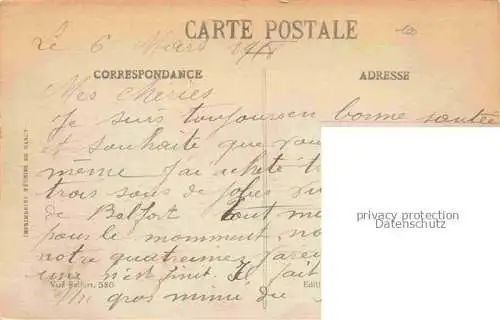 CARTE POSTALE
Le 6 Mars 1918
CORRESPONDANCE
ADRESSE
Mes chéries
Je suis toujours en bonne santée
et souhaite que vou
même j'ai acheté t
trois sous de plus vu
de Belfort tout me
pour le momment, no
notre quatrumez
une n'est finit. Il fait
gros mimi du
Vue Belfort. 580
Edit
IMPRIMERIES RÉUNIES DE NANCY
privacy protection
Datenschutz